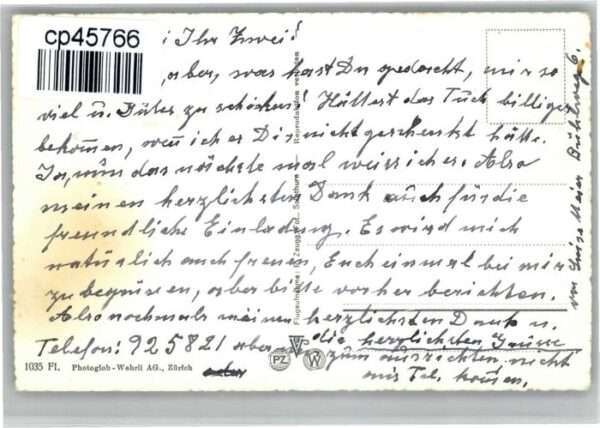 cp45766
Ihr Zwei!
aber, was hast Du gedacht, mir so
viel u. Gutes zu schicken! Hättest das Tuch billiger
bekommen, wenn ich es Dir nicht geschenkt hätte.
Ja, nun das nächste mal weiss ich es. Also
meinen herzlichsten Dank auch für die
freundliche Einladung. Es wird mich
natürlich auch freuen, Euch einmal bei mir
zu begrüssen, aber bitte vorher berichten.
Also nochmals meinen herzlichsten Dank u.
die herzlichsten Grüsse
Telefon: 925821 aber
zum ausrichten nicht
ans Tel. kommen.
von Luise Meier Bühlweg 6.
Flugaufnahme
Reproduktion verboten
1035 Ft. Photoglob-Wehrli AG., Zürich
PZ
W